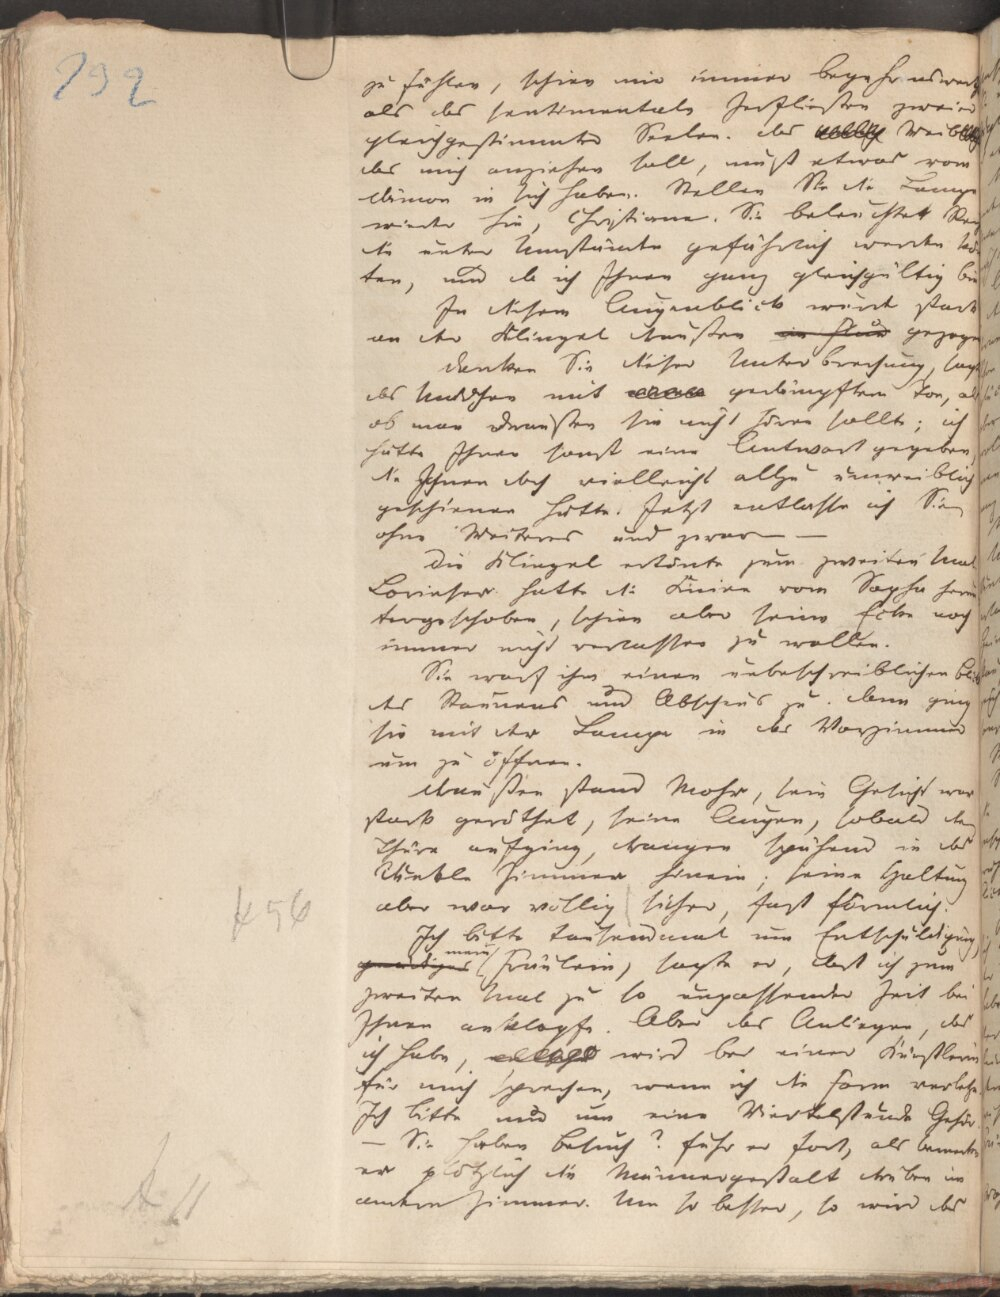 292
zu fühlen, schien mir immer begehrenswerth
als das sentimentale Zerfließen zweier
gleichgestimmter Seelen. das Weib
das mich anziehen soll, muß etwas vom
Dämon in sich haben. Stellen Sie die Lampe
wieder hin, Christiane. Sie beleuchtet
die unter Umständen gefährlich werden könn
ten, und da ich Ihnen ganz gleichgültig bin
In diesem Augenblick wurde stark
an der Klingel draußen im Flur gezogen
Danken Sie dieser Unterbrechung, sagte
das Mädchen mit gedämpftem Ton, als
ob man draußen sie nicht hören sollte; ich
hätte Ihnen sonst eine Antwort gegeben,
die Ihnen doch vielleicht allzu unweiblich
geschienen hätte. Jetzt entlasse ich Sie
ohne Weiteres und zwar — —
Die Klingel ertönte zum zweiten Mal
Lorinser hatte die Kniee vom Sopha herun
tergeschoben, schien aber seine Ecke noch
immer nicht verlassen zu wollen.
Sie warf ihm einen unbeschreiblichen Blick
des Staunens und Abscheus zu. Dann ging
sie mit der Lampe in das Vorzimmer
um zu öffnen.
Draußen stand Mohr, sein Gesicht war
stark geröthet, seine Augen, sobald die
Thüre aufging, drangen spähend in das
dunkle Zimmer hinein; seine Haltung
aber war völlig sicher, fast förmlich.
456
Ich bitte tausendmal um Entschuldigung,
gnädiges mein Fräulein, sagte er, daß ich zum
zweiten Mal zu so unpassender Zeit bei
Ihnen anklopfe. Aber das Anliegen, das
ich habe, wird bei einer Künstlerin
für mich sprechen, wenn ich die Form verletze.
Ich bitte nur um eine Viertelstunde Gehör.
— Sie haben Besuch? fuhr er fort, als bemerkte
er plötzlich die Männergestalt drüben im
andern Zimmer. Um so besser, so wird das